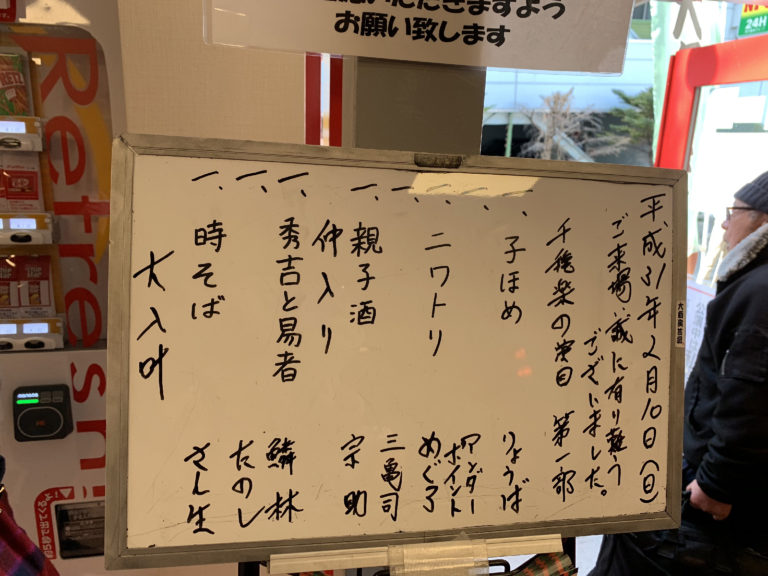 お願い致します
平成31年2月10日(日)
ご来場誠に有り難う
ございました。
千穐楽の演目 第一部
一、子ほめ りょうば
一、 アンダーポイント
一、ニワトリ めぐろ
一、 三亀司
一、親子酒 宗助
仲入り
一、秀吉と易者 鱗林
一、 たのし
一、時そば さん生
大入叶
Refreshi
24H